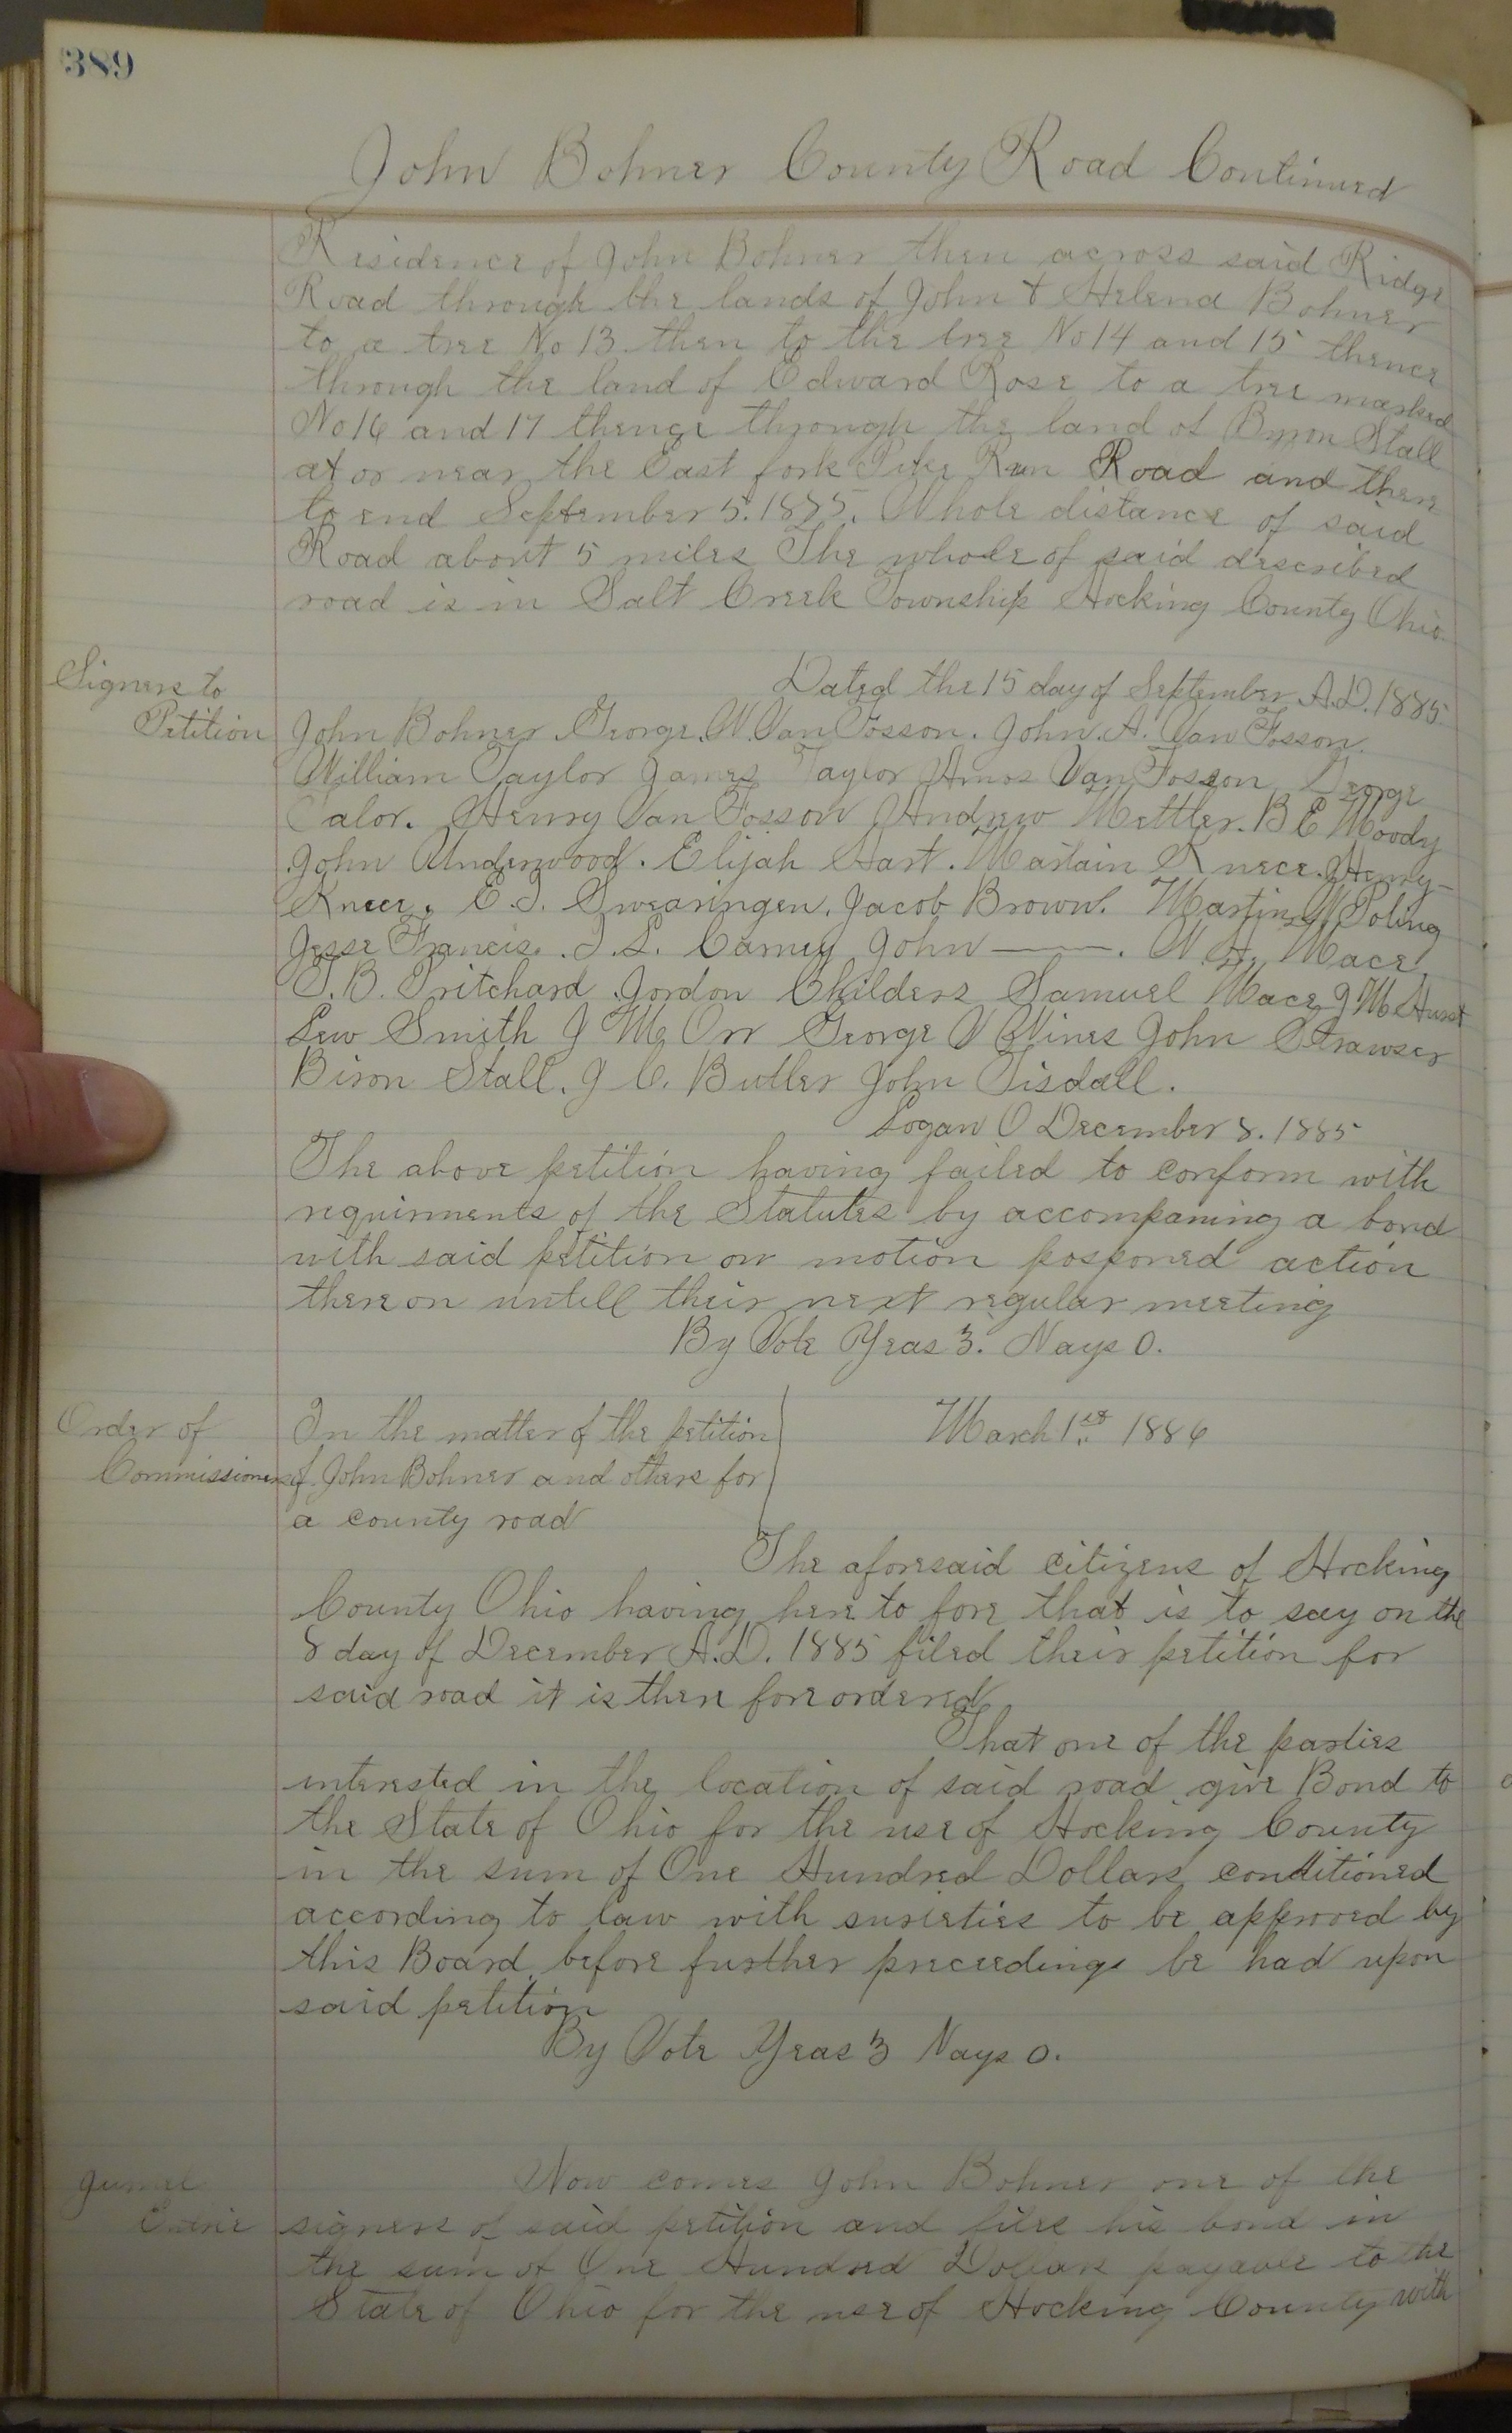 389
John Bohner County Road Continued
Residence of John Bohner then across said Ridge
Road through the lands of John & Helena Bohner
to a tree No 13 then to the tree No 14 and 15 thence
through the land of Edward Rose to a tree marked
No 16 and 17 thence through the land of Byron Stall
at or near the East fork Pike Run Road and there
to end September 5. 1885. Whole distance of said
Road about 5 miles The whole of said described
road is in Salt Creek Township Hocking County Ohio
Dated the 15 day of September A.D. 1885
Signers to
Petition
John Bohner George. W. Van Fosson. John. A. Van Fosson.
William Taylor James Taylor Amos Van Fosson George
Calor. Henry Van Fosson Andrew Mettler. B E Moody
John Underwood. Elijah Hart. Martain Knece. Henry
Kneer. E. S. Swearingen. Jacob Brown. Martin W Poling
Jesse Francis. . S. L. Carney John ——. W. H. Mace
T. B. Pritchard Jordon Childers Samuel Mace J M Hurst
Lew Smith J M Orr George V Wines John Strawser
Biron Stall. J C. Butler John Tisdall.
Logan O December 8. 1885
The above petition having failed to conform with
requirments of the Statutes by accompaning a bond
with said petition on motion posponed action
there on untill their next regular meeting
By Vote Yeas 3. Nays 0.
Order of
Commissioners
In the matter of the petition
of John Bohner and others for
a county road
March 1st 1886
The aforesaid citizens of Hocking
County Ohio having here to fore that is to say on the
8 day of December A.D. 1885 filed their petition for
said road it is there fore ordered
That one of the parties
interested in the location of said road give Bond to
the State of Ohio for the use of Hocking County
in the sum of One Hundred Dollars conditioned
according to law with sureties to be approved by
this Board before further preceedings be had upon
said petition
By Vote Yeas 3 Nays 0.
Jurnal
Entrie
Now comes John Bohner one of the
signers of said petition and files his bond in
the sum of One Hundred Dollars payable to the
State of Ohio for the use of Hocking County with